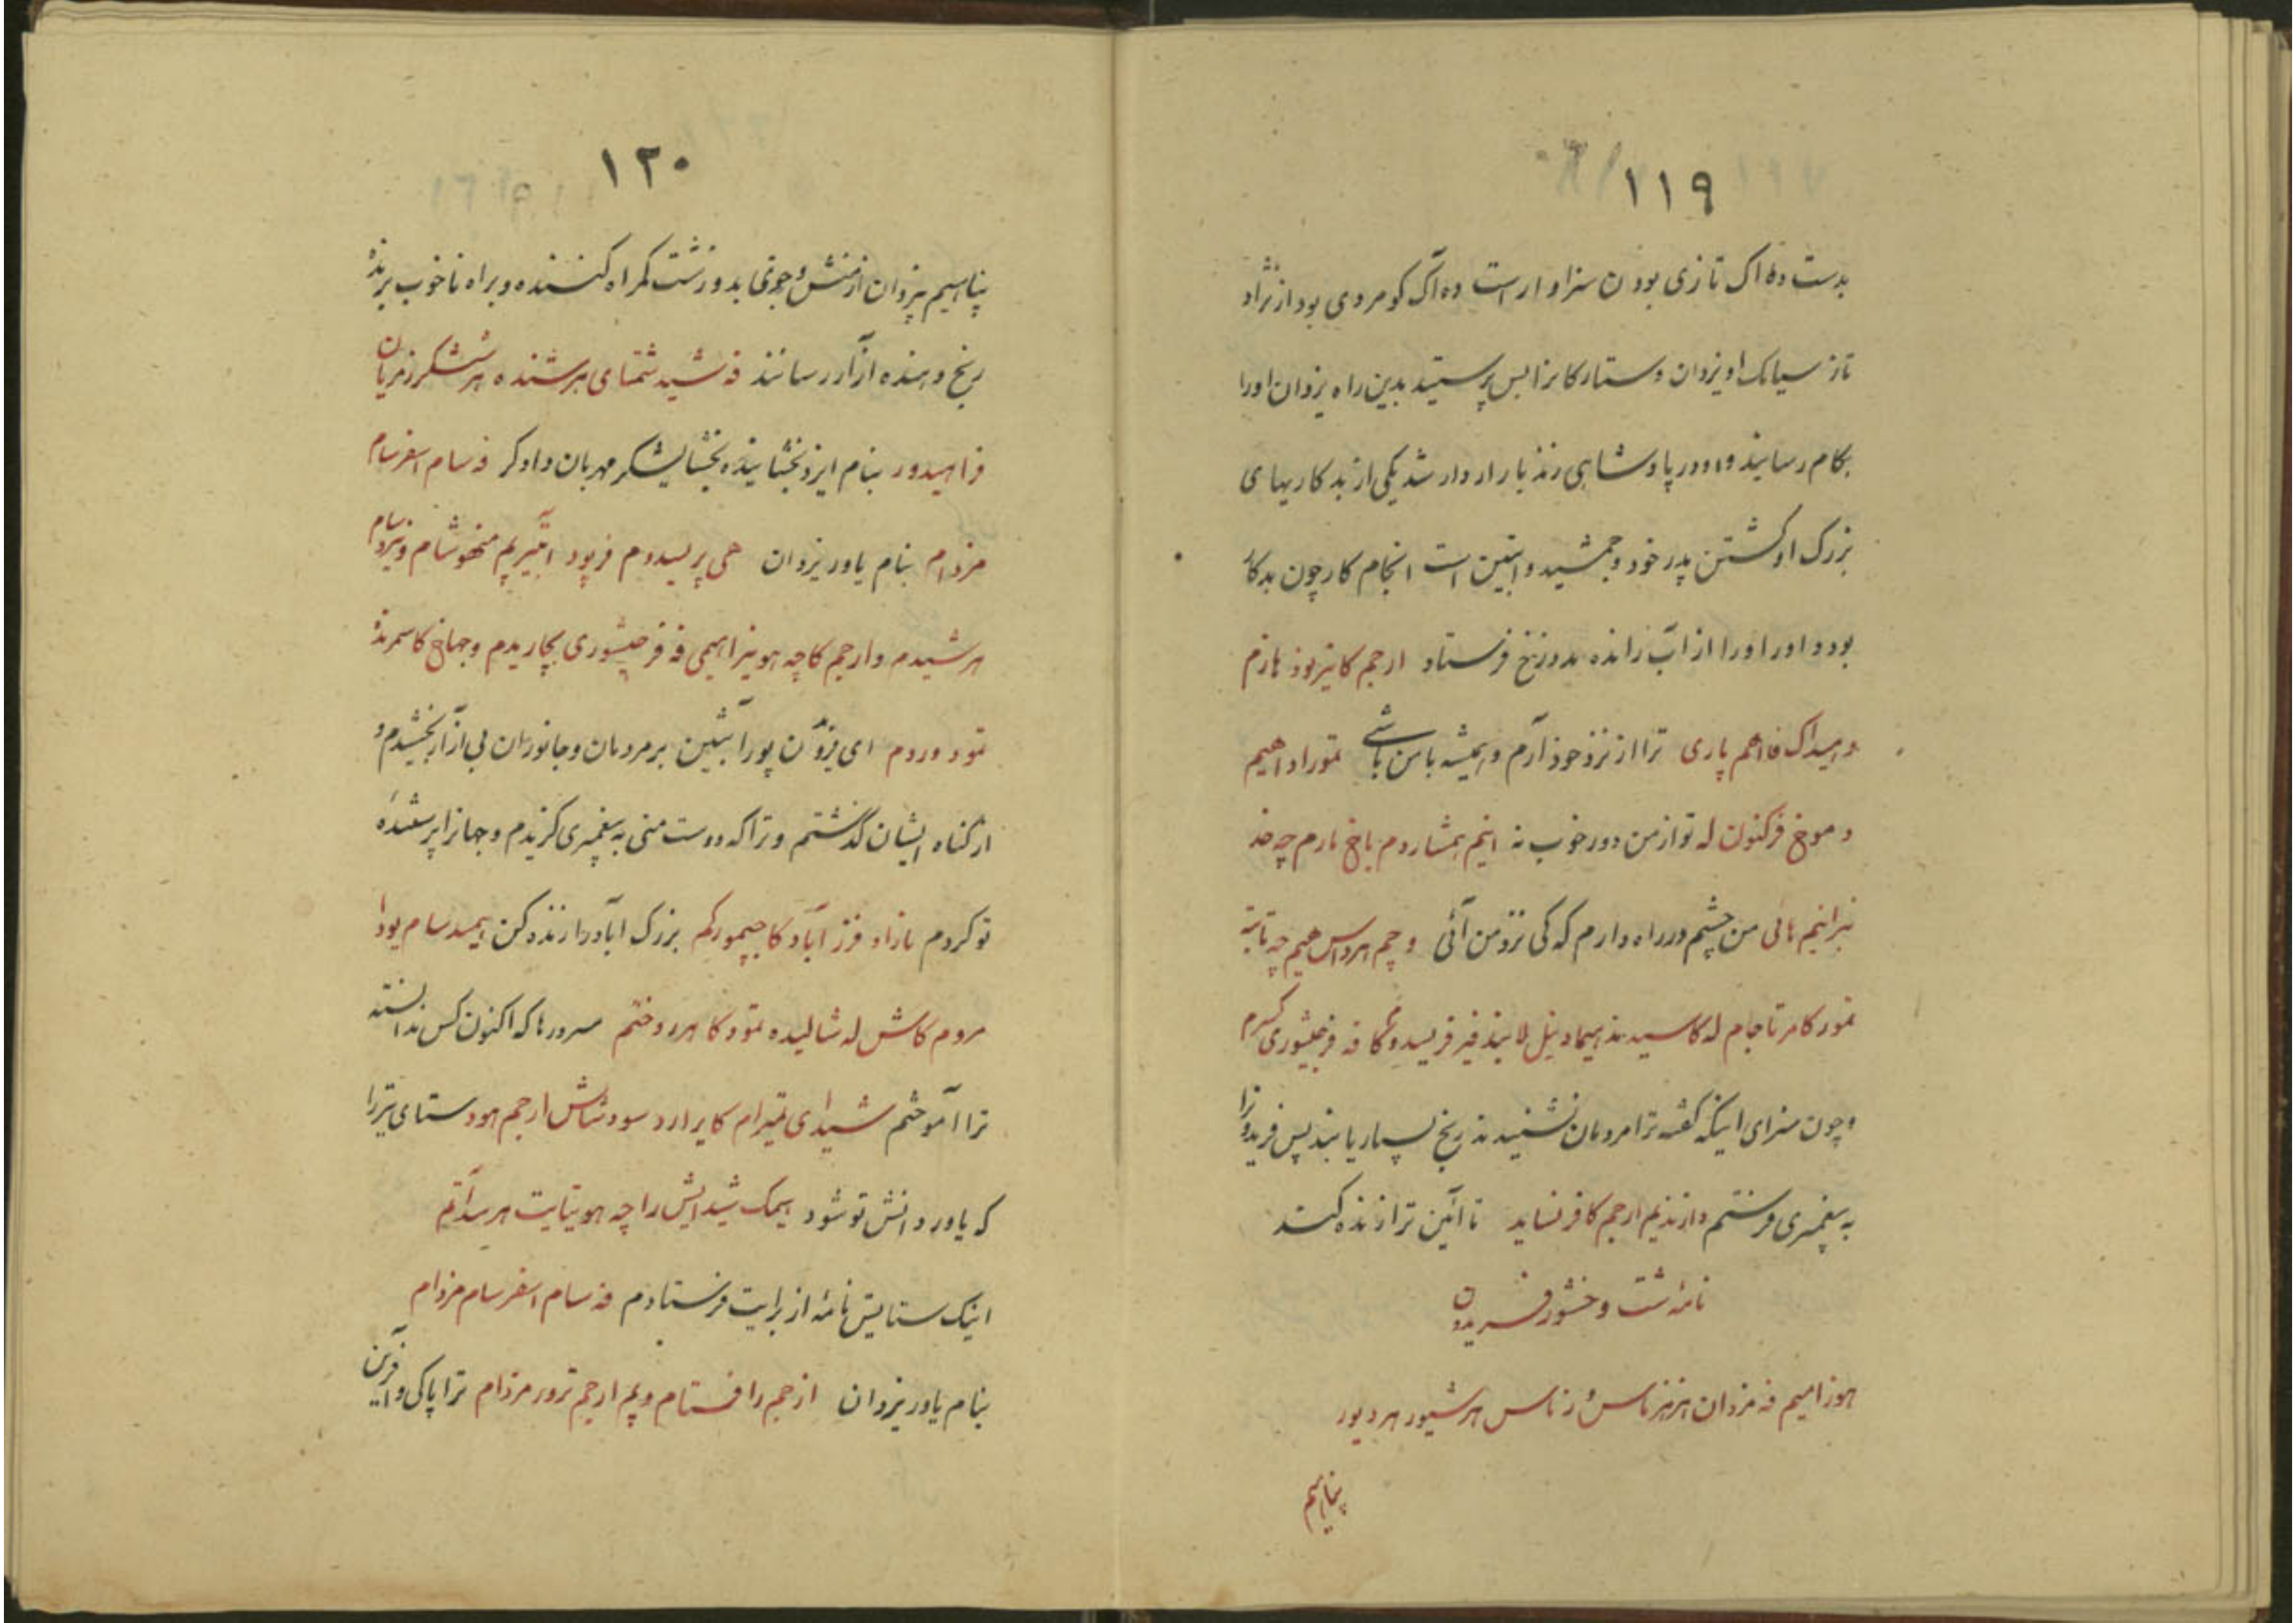 ۱۱۹
بدست ده اک تازی بودن سزاوار است ده آک کو مردی بود از نژاد
تاز سیامک او یزدان و ستارکانرا بس پرستید بدین راه یزدان اورا
بکام رسانید و او در پادشاهی زندبار ازار شد یکی از بدکاریهای
بزرک او کشتن پدر خود و جمشید و ابتین است انجام کار چون بدکار
بود داور اورا از آب رانده بدوزخ فرستاد ارجم کا نیز بود هازم
و هیداک فا اهم پاری ترا از نزد خود آرم و همیشه با من باشی تمور ادا هیم
و موخ فرکنون له تو از من دور خوب نه اینم همشاردم باخ مارم چه خد
نیرا نیم هائی من چشم در راه دارم که کی نزد من آئی و چم هرداس هیم چه تابته
تمور کامر تاجام له کاسیدند هیماد نیل لا بیند فیز فریسدوم کا فه فرجیشوری کسرم
و چون سزای اینکه گفته ترا مردمان نشنیدند رنج بسیار یابند پس فریدونرا
به پیغمبری فرستم وا زندیم ارجم کا فرنساید تا آئین ترا زنده کند
نامه شت وخشور فریدون
هوزامیم فه مزدان هزهزماس و زماس هرشیور هردیور
پناهیم
۱۲۰
پناهیم بیزدان از منش و خوی بد و زشت گمراه کننده و براه ناخوب برنده
رنج دهنده آزار رسانند فه شید شمتای هرشنده هرششگر زمریان
فراهیدور بنام ایزد بخشاینده بخشایشگر مهربان دادگر فه سام اسفر سام
مزدام بنام یاور یزدان هی پریسدوم فر پود آبتیر یم منهوشام و نیزدسام
هرشیدم و ارجم کاچه هو نیز اهیمی فه فرجیشوری بچاریدم و جهاخ کاسمرنده
تمود وردم ای فریدون پور آبتین بر مردمان و جانوران بی آزار بخشیدم و
از گناه ایشان گذشتم و ترا که دوست منی به پیغمبری گزیدم و جهانرا پرستنده
تو کردم نازاد فرز آباد کا جیمور کم بزرک اباد را زنده کن هیمد سام یودا
مروم کاش له شالیده تمود کا هرر و ختم سرورها که اکنون کس ندانسته
ترا آموختم شیدای تمیرام کا یرارد سود شاش ارجم هود ستای تیررا
که یاور دانش تو شود هیمک شیدایش را چه هو یتایت هرسدآیم
اینک ستایش نامه از برایت فرستادم فه سام اسفر سام مزدام
بنام یاور یزدان ازجم را فستام و یم ارجم ترور مزدام ترا پاکی و آفرین